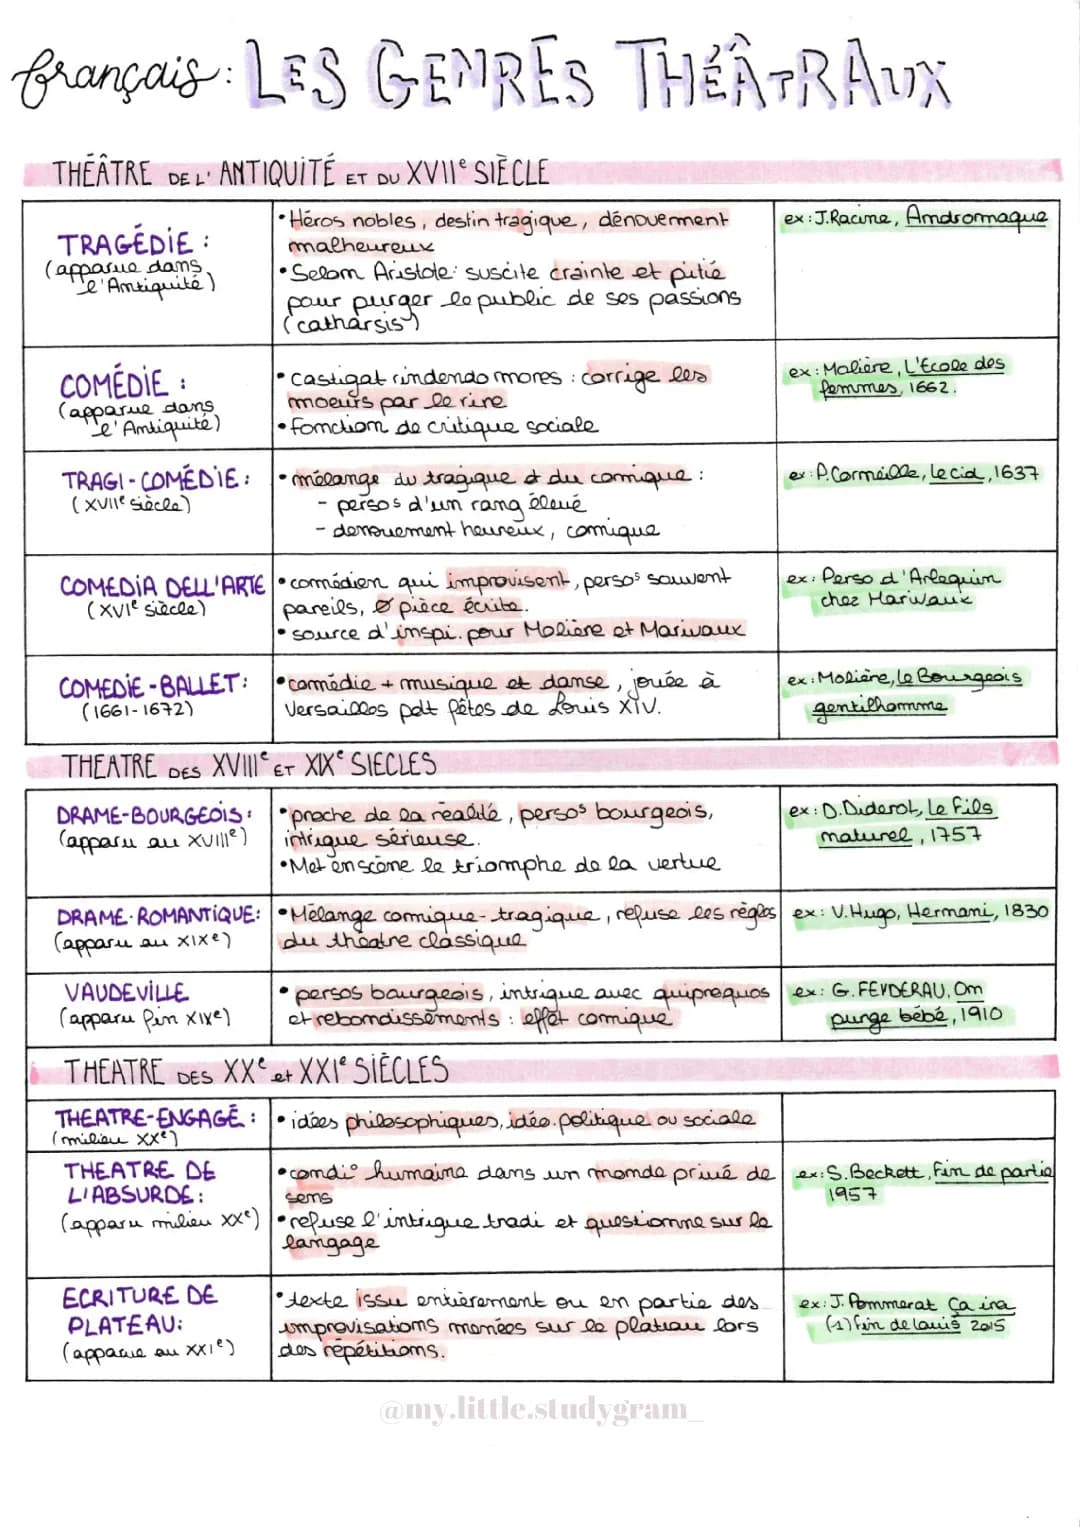 français: LES GENRES THÉÂTRAUX
THÉÂTRE DE L'ANTIQUITÉ ET DU XVIIe SIÈCLE
TRAGÉDIE :
(apparue dans
l'Antiquité)
• Héros nobles, destin tragique, dénouement
malheureux
• Selon Aristote: suscite crainte et pitié
pour purger le public de ses passions
(catharsis)
ex: J.Racine, Andromaque
COMÉDIE :
(apparue dans
l'Antiquité)
• Castigat rindendo mores : corrige les
moeurs par le rire
• Fonction de critique sociale
ex: Molière, L'Ecole des
femmes, 1662.
TRAGI-COMÉDIE :
(XVIIe siècle)
• mélange du tragique et du comique :
- persos d'un rang élevé
- denouement heureux, comique
ex: P.Corneille, Le cid, 1637
COMEDIA DELL'ARTE
(XVIe siècle)
• comédien qui improvisent, persos souvent
pareils, Ø pièce écrite.
• source d'inspi. pour Molière et Marivaux
ex: Perso d'Arlequin
chez Marivaux
COMEDIE-BALLET:
(1661-1672)
• comédie + musique et danse, jouée à
Versailles pdt fêtes de Louis XIV.
ex: Molière, Le Bourgeois
gentilhomme
THEATRE DES XVIIIe ET XIXe SIECLES
DRAME-BOURGEOIS:
(apparu au XVIIIe)
• proche de la réalité, persos bourgeois,
intrigue sérieuse.
• Met en scène le triomphe de la vertue
ex: D.Diderot, Le Fils
naturel, 1757
DRAME-ROMANTIQUE:
(apparu au XIXe)
• Mélange comique-tragique, refuse les règles
du théâtre classique
ex: V.Hugo, Hernani, 1830
VAUDEVILLE
(apparu fin XIXe)
• persos bourgeois, intrigue avec quiproquos
et rebondissements : effet comique
ex: G.FEYDERAU, On
purge bébé, 1910
THEATRE DES XXe et XXIe SIÈCLES
THEATRE-ENGAGÉ :
(milieu XXe)
• idées philosophiques, idéo. politique ou sociale
THEATRE DE
L'ABSURDE:
(apparu milieu XXe)
• condi° humaine dans un monde privé de
sens
• refuse l'intrigue tradi et questionne sur le
langage
ex: S.Beckett, Fin de partie
1957
ECRITURE DE
PLATEAU:
(apparue au XXIe)
• texte issu entièrement ou en partie des
improvisations menées sur le plateau lors
des répétitions.
ex: J. Pommerat Ça ira
(1) Fin de Louis 2015
@my.little.studygram_